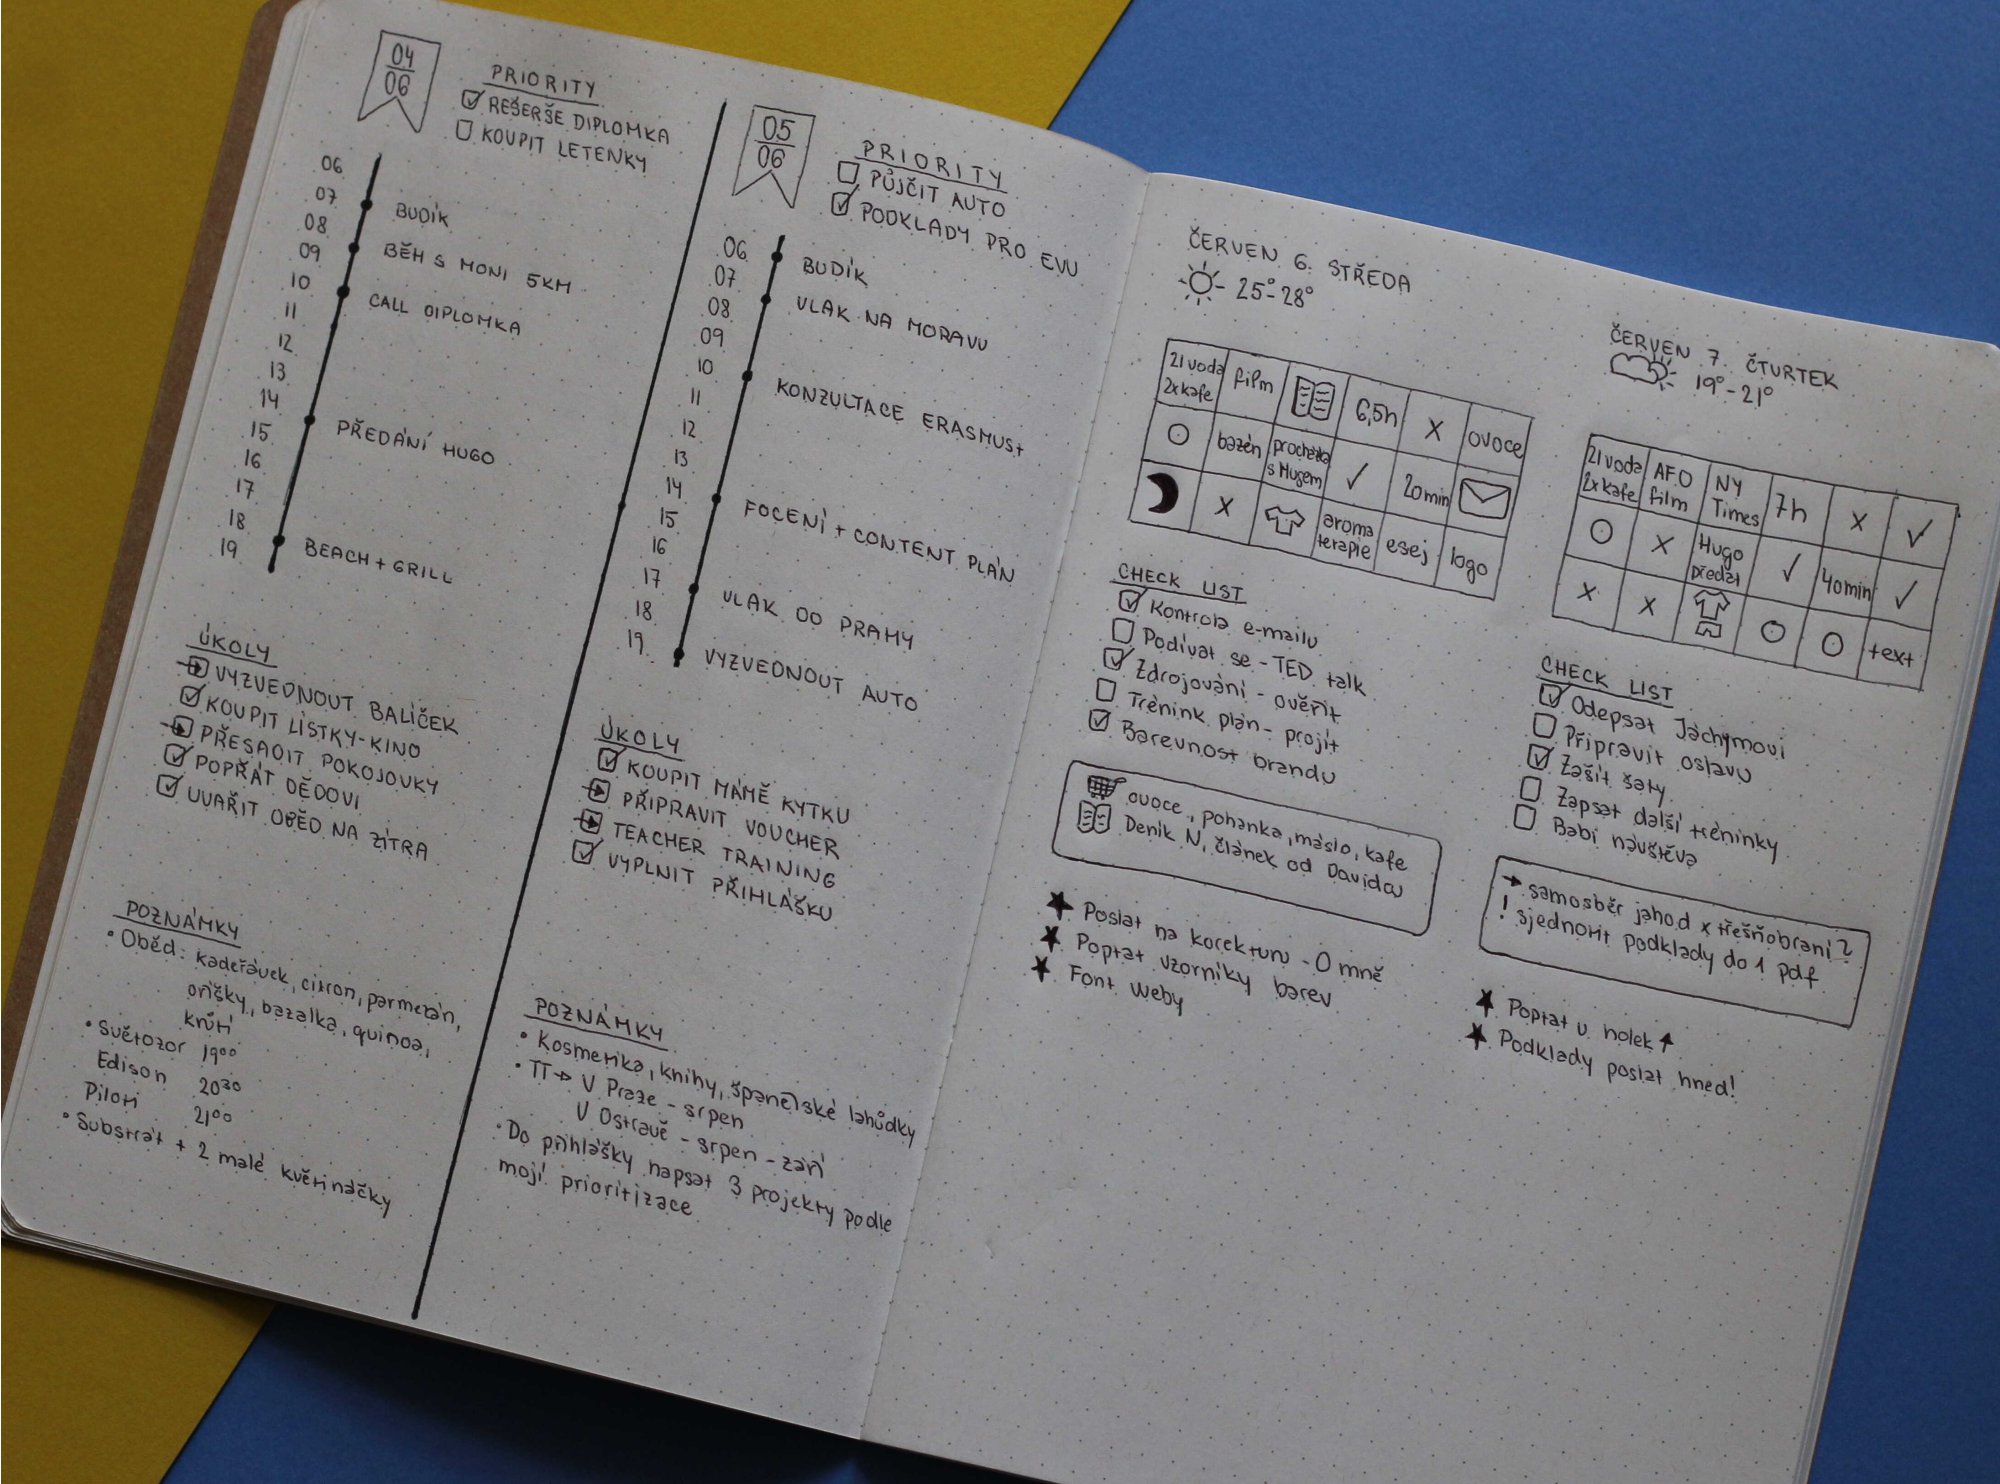 04
06
PRIORITY
REŠERŠE DIPLOMKA
KOUPIT LETENKY
06
07
BUDÍK
08
09
BĚH S MONI 5KM
10
CALL DIPLOMKA
11
12
13
14
15
PŘEDÁNÍ HUGO
16
17
18
19
BEACH + GRILL
ÚKOLY
VYZVEDNOUT BALÍČEK
KOUPIT LÍSTKY-KINO
PŘESADIT POKOJOVKY
POPŘÁT DĚDOVI
UVAŘIT OBĚD NA ZÍTRA
POZNÁMKY
• Oběd: kadeřávek, citron, parmezán,
oříšky, bazalka, quinoa,
krůtí
• Světozor 19⁰⁰
Edison 20³⁰
Piloti 21⁰⁰
• Substrát + 2 malé květináčky
05
06
PRIORITY
PŮJČIT AUTO
PODKLADY PRO EVU
06
BUDÍK
07
08
VLAK NA MORAVU
09
10
11
KONZULTACE ERASMUS+
12
13
14
15
FOCENÍ + CONTENT PLÁN
16
17
18
VLAK DO PRAHY
19
VYZVEDNOUT AUTO
ÚKOLY
KOUPIT MÁMĚ KYTKU
PŘIPRAVIT VOUCHER
TEACHER TRAINING
VYPLNIT PŘIHLÁŠKU
POZNÁMKY
• Kosmetika, knihy, španělské lahůdky
• TT → V Praze - srpen
V Ostravě - srpen - září
• Do přihlášky napsat 3 projekty podle
mojí prioritizace
ČERVEN 6. STŘEDA
25° - 28°
2l voda 2x kafe film 6,5h X ovoce
bazén procházka s Hugem ✓ 20min
X aroma terapie esej logo
CHECK LIST
Kontrola e-mailu
Podívat se - TED talk
Zdrojování - ověřit
Trénink plán - projít
Barevnost brandu
ovoce, pohanka, máslo, kafe
Deník N, článek od Davida
★ Poslat na korekturu - O mně
★ Poptat vzorníky barev
★ Font weby
ČERVEN 7. ČTVRTEK
19° - 21°
2l voda 2x kafe AFO film NY Times 7h X ✓
X Hugo předat ✓ 40min ✓
X X text
CHECK LIST
Odepsat Jáchymovi
Připravit oslavu
Zašít šaty
Zapsat další tréninky
Babi návštěva
→ samosběr jahod x třešňobraní?
! sjednotit podklady do 1 pdf
★ Poptat u holek ↑
★ Podklady poslat hned!